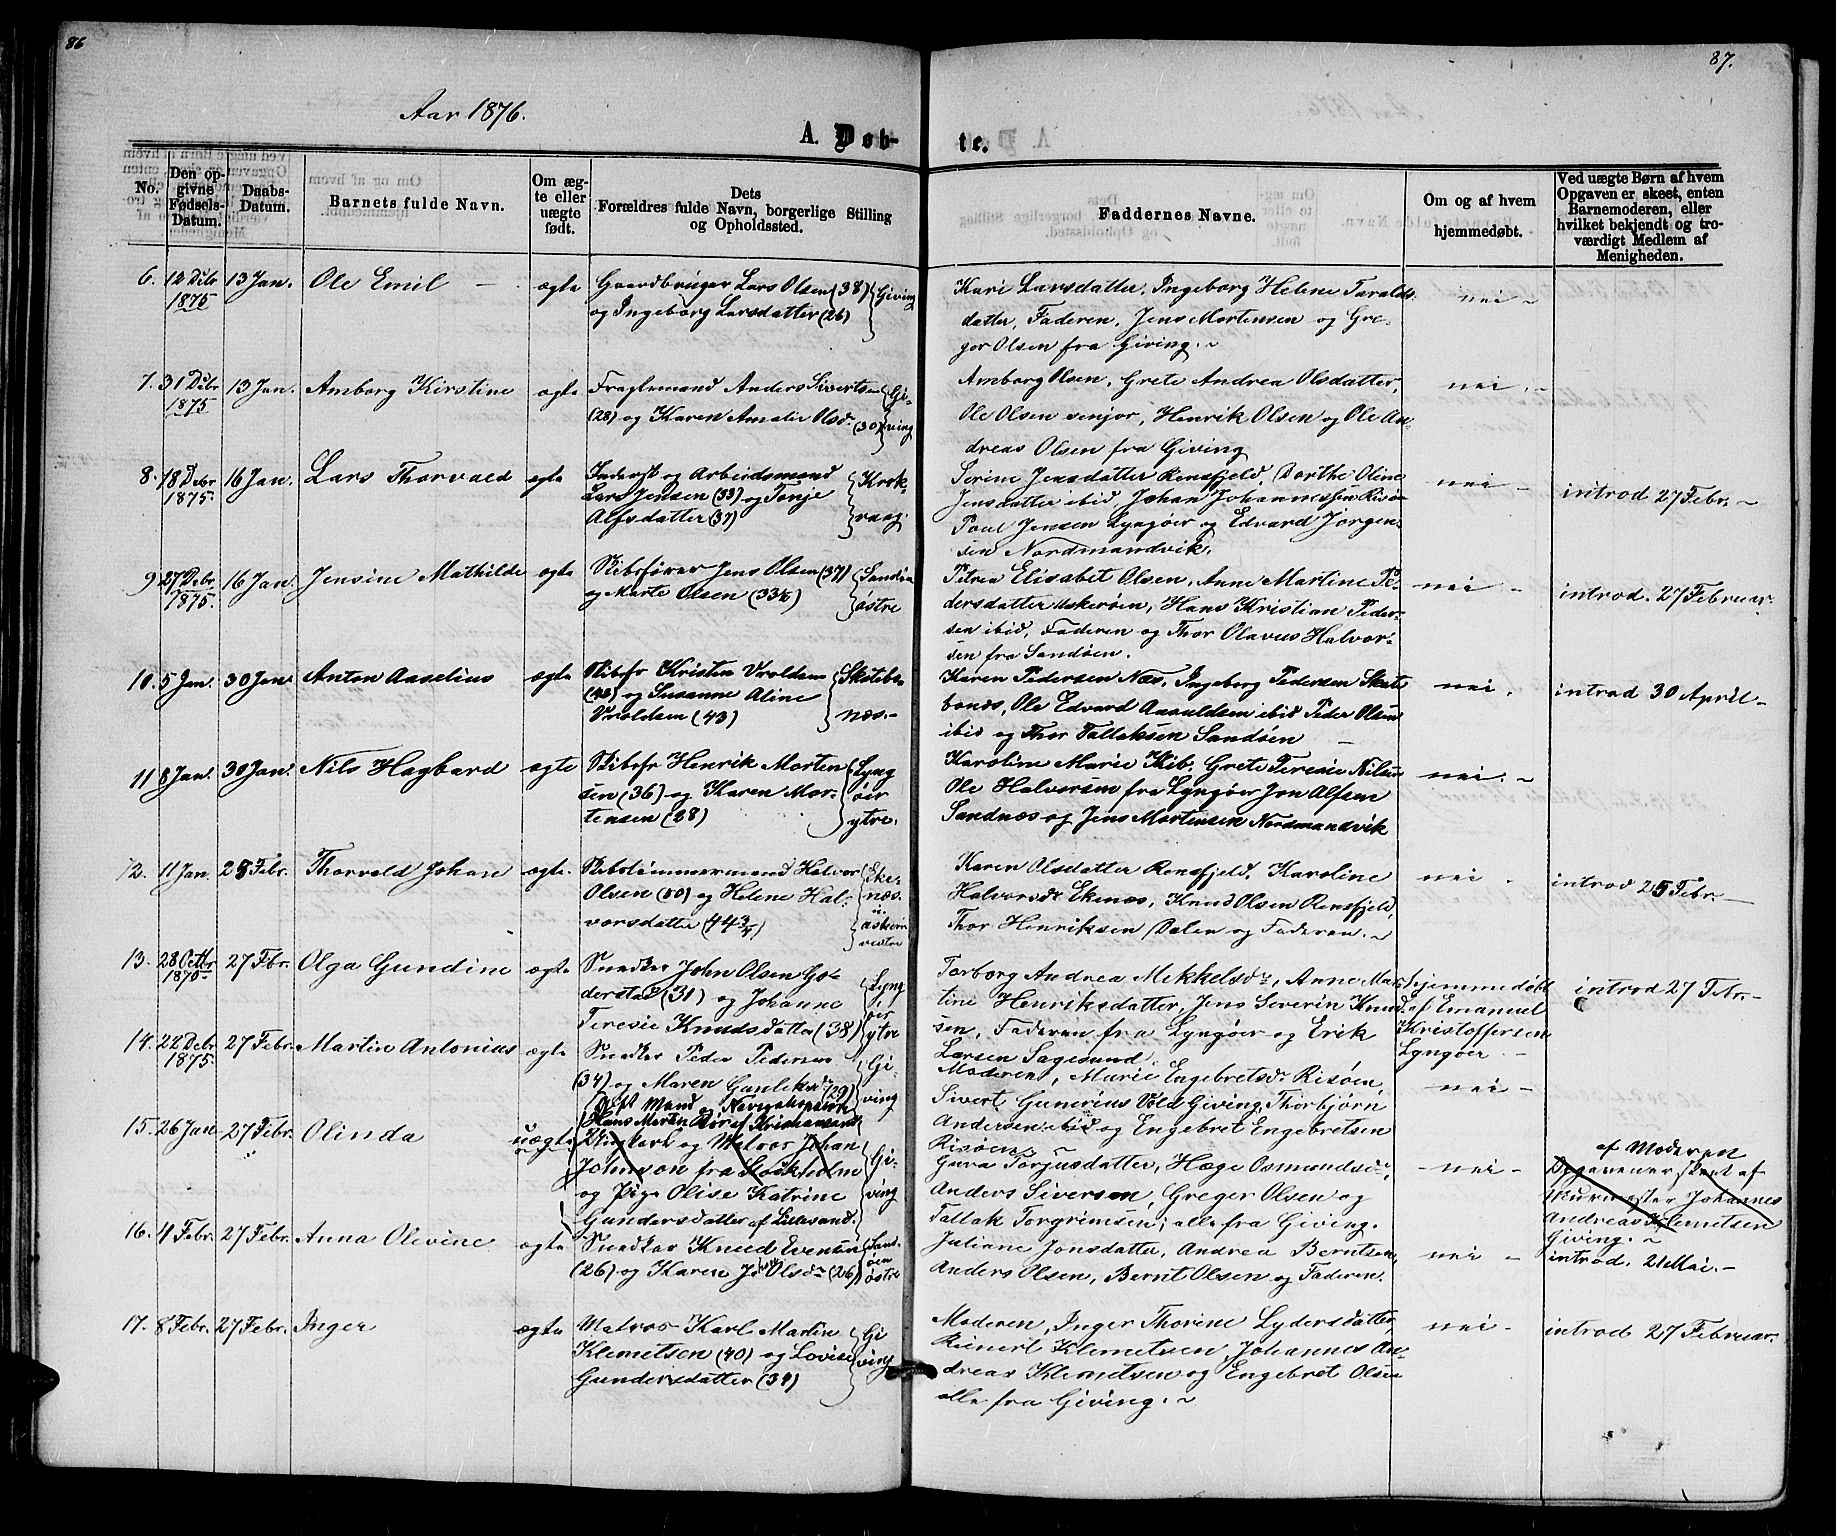 86
87.
Aar 1876.
A. Døb-
te.
No.
Den op-
givne
Fødsels-
Datum.
Daabs-
Datum.
Barnets fulde Navn.
Om æg-
te eller
uægte
født.
Dets
Forældres fulde Navn, borgerlige Stilling
og Opholdssted.
Faddernes Navne.
Om og af hvem
hjemmedøbt.
Ved uægte Børn af hvem
Opgaven er skeet, enten
Barnemoderen, eller
hvilket bekjendt og tro-
værdigt Medlem af
Menigheden.
6. 12 Debr 1875 13 Jan. Ole Emil - ægte
Gaardbruger Lars Olsen (38)
og Ingeborg Larsdatter (26)
Giving
Kari Larsdatter, Ingeborg Helene Taralds-
datter, Faderen, Jens Mortensen og Gre-
gor Olsen fra Giving.
nei
7. 31 Debr 1875 13 Jan. Amborg Kirstine ægte
Fragtemand Anders Sivertsen
(28) og Karen Amalie Olsdr (30)
Gi-
ving
Amborg Olsen, Grete Andrea Olsdatter,
Ole Olsen senjor, Henrik Olsen og Ole An-
dreas Olsen fra Giving
nei
8. 18 Debr 1875 16 Jan. Lars Thorvald ægte
Inderst og Arbeidsmand
Lars Jensen (33) og Tonje
Alfsdatter (37)
Krok-
vaag.
Serine Jensdatter Rensfjeld, Dorthe Oline
Jensdatter ibid Johan Johannessen Risøen
Poul Jensen Lyngøer og Edvard Jørgen-
sen Nordmandvik.
nei
introd 27 Febr.
9 27 Debr 1875. 16 Jan. Jensine Mathilde ægte
Skibsfører Jens Olsen (37)
og Marte Olsen (33½)
Sandøen
østre
Petrea Elisabet Olsen, Anne Martine Pe-
dersdatter Askerøen, Hans Kristian Peder-
sen ibid, Faderen og Thor Olavus Halvor-
sen fra Sandøen.
nei
introd. 27 Februar.
10. 5 Jan. 30 Jan. Anton Aaselius ægte
Skibsfr Kristen Vroldsen
og Susanne Aline
Vroldsen (43)
Skutebo-
næs.-
Karen Pedersen Næs, Ingeborg Pedersen Skute-
bonæs, Ole Edvard Aasuldsen ibid Peder Olsen
ibid og Thor Tallaksen Sandøen
nei.
introd 30 April
11 8 Jan. 30 Jan. Nils Hagbard ægte
Skibsfr Henrik Morten-
sen (36) og Karen Mor-
tensen (28)
Lyng-
øer
ytre.
Karoline Marie Kib, Grete Teresie Nilsen
Ole Halvorsen fra Lyngøer Jon Alfsen
Sandnæs og Jens Mortensen Nordmandvik
nei.
12. 11 Jan. 25 Febr. Thorvald Johan ægte.
Skibstømmermand Halvor
Olsen (50) og Helene Hal-
vorsdatter (44¾)
Eke-
næs.
vestre
Karen Olsdatter Rensfjeld, Karoline
Halvorsdr Ekenæs, Knud Olsen Rensfjeld,
Thor Henriksen Dalen og Faderen.
nei
introd 25 Febr.
13. 28 Octbr 1875 27 Fbr. Olga Gundine ægte
Snedker John Olsen Go-
derstad (31) og Johanne
Teresie Knudsdatter (38)
Lyng-
øer
ytre
Torborg Andrea Mikkelsdr, Anne Mar-
tine Henriksdatter, Jens Severin Knud-
sen, Faderen fra Lyngøer og Erik
Larsen Sagesund.
hjemmedøbt
af Emanuel
Kristoffersen
Lyngøer
introd 27 Febr.
14. 22 Debr 1875. 27 Febr. Martin Antonius ægte
Snedker Peder Pedersen
(34) og Maren Gunleksdr (29)
Gi-
ving
Moderen, Marie Engebretsdr Risøen,
Sivert Gunerius Vold Giving, Thorbjørn
Andersen ibid og Engebret Engebretsen
Risøen
nei
15. 26 Jan 27 Febr. Olinda uægte
Gift Mand og
Hans Martin af Kristiansand
Ungkarl og Matros Johan
Johnson fra Stockholm
og Pige Olise Katrine
Gundersdatter af Lillesand.
Gi-
ving
Gura Torjusdatter, Hæge Osmundsdr,
Anders Siversen, Greger Olsen og
Tallak Torgrimsen, alle fra Giving.
nei
af Moderen
Opgaven er skeet af
Murmester Johannes
Andreas Klemetsen
Giving.
16. 4 Febr. 27 Febr. Anna Olevine ægte
Snedker Knud Evensen
(26) og Karen Olsdr (26)
Sand-
øen
østre
Juliane Jonsdatter, Andrea Berntsen,
Anders Olsen, Bernt Olsen og Faderen.
nei
introd. 21 Mai.
17. 8 Febr. 27 Febr. Inger ægte
Matros Karl Martin
Klemetsen (40) og Lovise
Gundersdatter (34)
Gi
ving
Moderen, Inger Thorine Lydersdatter,
Reinert Klemetsen, Johannes An-
dreas Klemetsen og Engebret Olsen
alle fra Giving.
nei
introd 27 Februar.